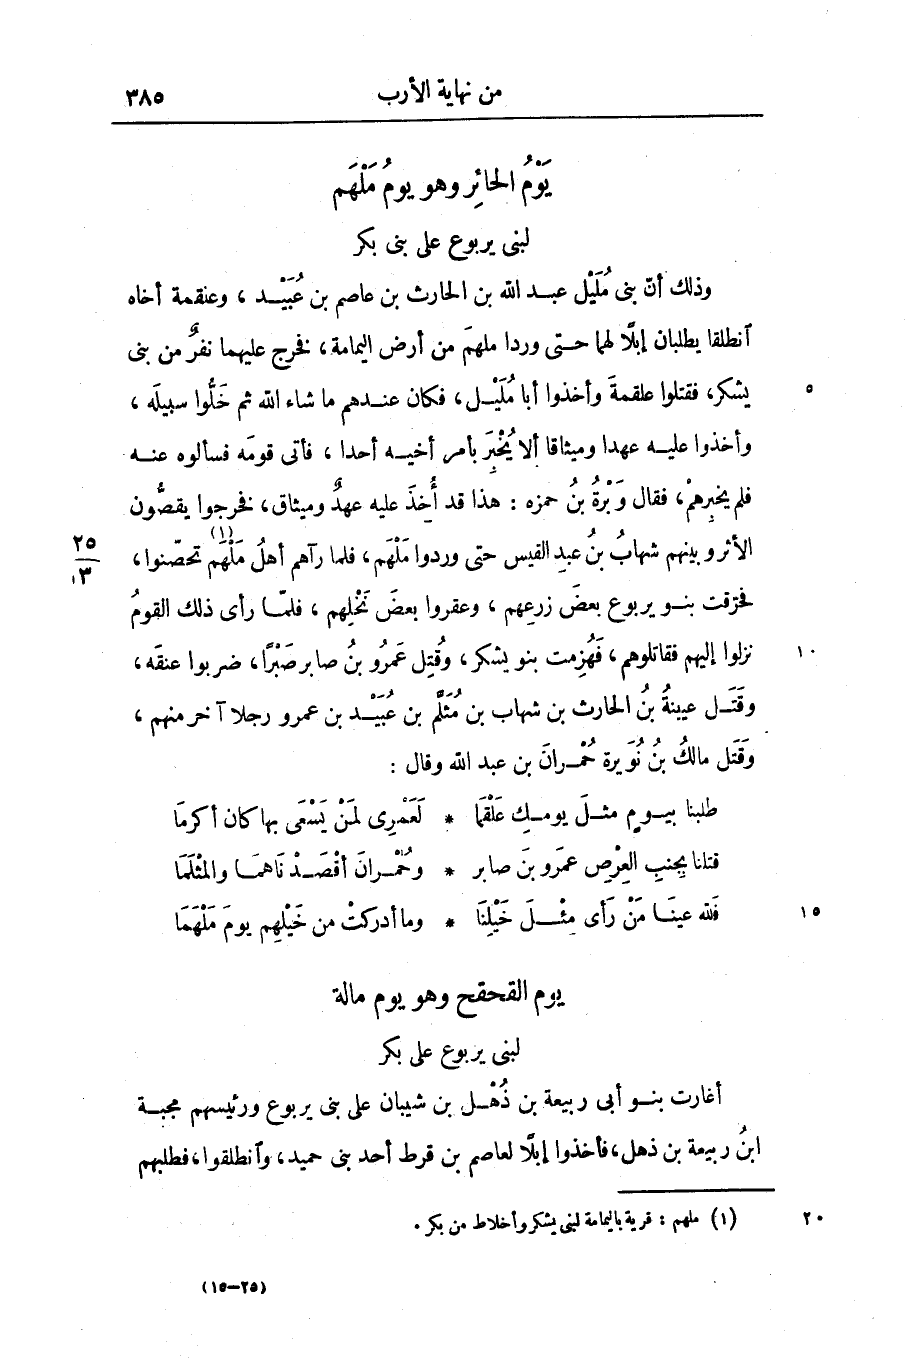 من نهاية الأرب ٣٨٥
يَوْمُ الحائِرِ وهو يومُ مَلْهَم
لبنى يربوع على بنى بكر
وذلك أنّ بنى مُلَيْل عبد الله بن الحارث بن عاصم بن عُبَيْد ، وعنقمة أخاه
آنطلقا يطلبان إبلًا لهما حتى وردا ملهمَ من أرض اليمامة، فخرج عليهما نفرٌ من بنى
يشكر، فقتلوا علقمةَ وأخذوا أبا مُلَيْل، فكان عندهم ما شاء الله ثم خَلُّوا سبيلَه ، ٥
وأخذوا عليه عهدا وميثاقا ألا يُخْبِرَ بأمر أخيه أحدا ، فأتى قومَه فسألوه عنه
فلم يخبرهمْ، فقال وَبْرةُ بنُ حمزه : هذا قد أُخِذَ عليه عهدٌ وميثاق، فخرجوا يقصُّون
الأثر وبينهم شهابُ بنُ عبدِ القيس حتى وردوا مَلْهَم، فلما رآهم أهلُ مَلْهَم (١) تحصّنوا، ٢٥/١٣
فحرّقت بنو يربوع بعضَ زرعِهم ، وعقروا بعضَ نَخْلِهم ، فلمّا رأى ذلك القومُ
نزلوا إليهم فقاتلوهم، فَهُزِمت بنو يشكر، وقُتِل عَمرُو بنُ صابر صَبْرًا، ضربوا عنقَه، ١٠
وقَتَل عيينةُ بنُ الحارث بن شهاب بن مُثَلَّم بن عُبَيْد بن عمرو رجلا آخر منهم ،
وقَتَل مالكُ بنُ نُوَيرة حُمْرانَ بن عبد الله وقال :
طلبنا بيومٍ مثلَ يومكِ عَلْقَما * لَعَمْرِى لمَنْ يَسْعَى بها كان أكرمَا
قتلنا بِجنبِ العِرْضِ عمَرو بنَ صابر * وحُمْرانَ أقْصَدْنَاهمَا والمُثْلَمَا
فلله عينَا مَنْ رَأى مِثْلَ خَيْلِنَا * وما أدركتْ من خَيْلِهم يومَ مَلْهَمَا ١٥
يوم القحقح وهو يوم مالة
لبنى يربوع على بكر
أغارت بنو أبى ربيعة بن ذُهْل بن شيبان على بنى يربوع ورئيسهم مجبة
ابنُ ربيعة بن ذهل، فأخذوا إبلًا لعاصم بن قرط أحد بنى حميد، وآنطلقوا، فطلبهم
(١) ملهم : قرية باليمامة لبنى يشكر وأخلاط من بكر . ٢٠
(٢٥-١٥)